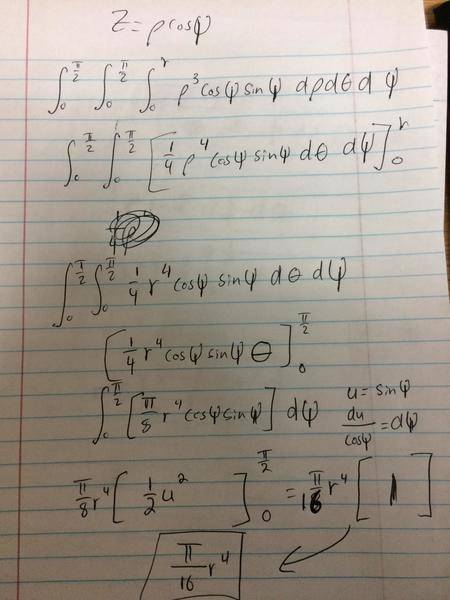 Z = ρ cosφ
∫₀^{π/2} ∫₀^{π/2} ∫₀^r ρ³ cosφ sinφ dρ dθ dφ
∫₀^{π/2} ∫₀^{π/2} [ 1/4 ρ⁴ cosφ sinφ dθ dφ ]₀^r
∫₀^{π/2} ∫₀^{π/2} 1/4 r⁴ cosφ sinφ dθ dφ
[ 1/4 r⁴ cosφ sinφ θ ]₀^{π/2}
∫₀^{π/2} [ π/8 r⁴ cosφ sinφ ] dφ
u = sinφ
du/cosφ = dφ
π/8 r⁴ [ 1/2 u² ]₀^{π/2} = π/16 r⁴ [ 1 ]
π/16 r⁴